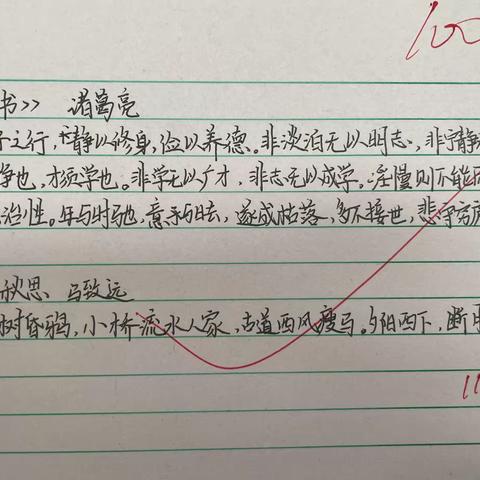 100
书>> 诸葛亮
之行，静以修身，俭以养德。非淡泊无以明志，非宁静
静也，才须学也。非学无以广才，非志无以成学。淫慢则不能
治性。年与时驰，意与日去，遂成枯落，多不接世，悲守穷
秋思 马致远
树昏鸦，小桥流水人家，古道西风瘦马。夕阳西下，断
11